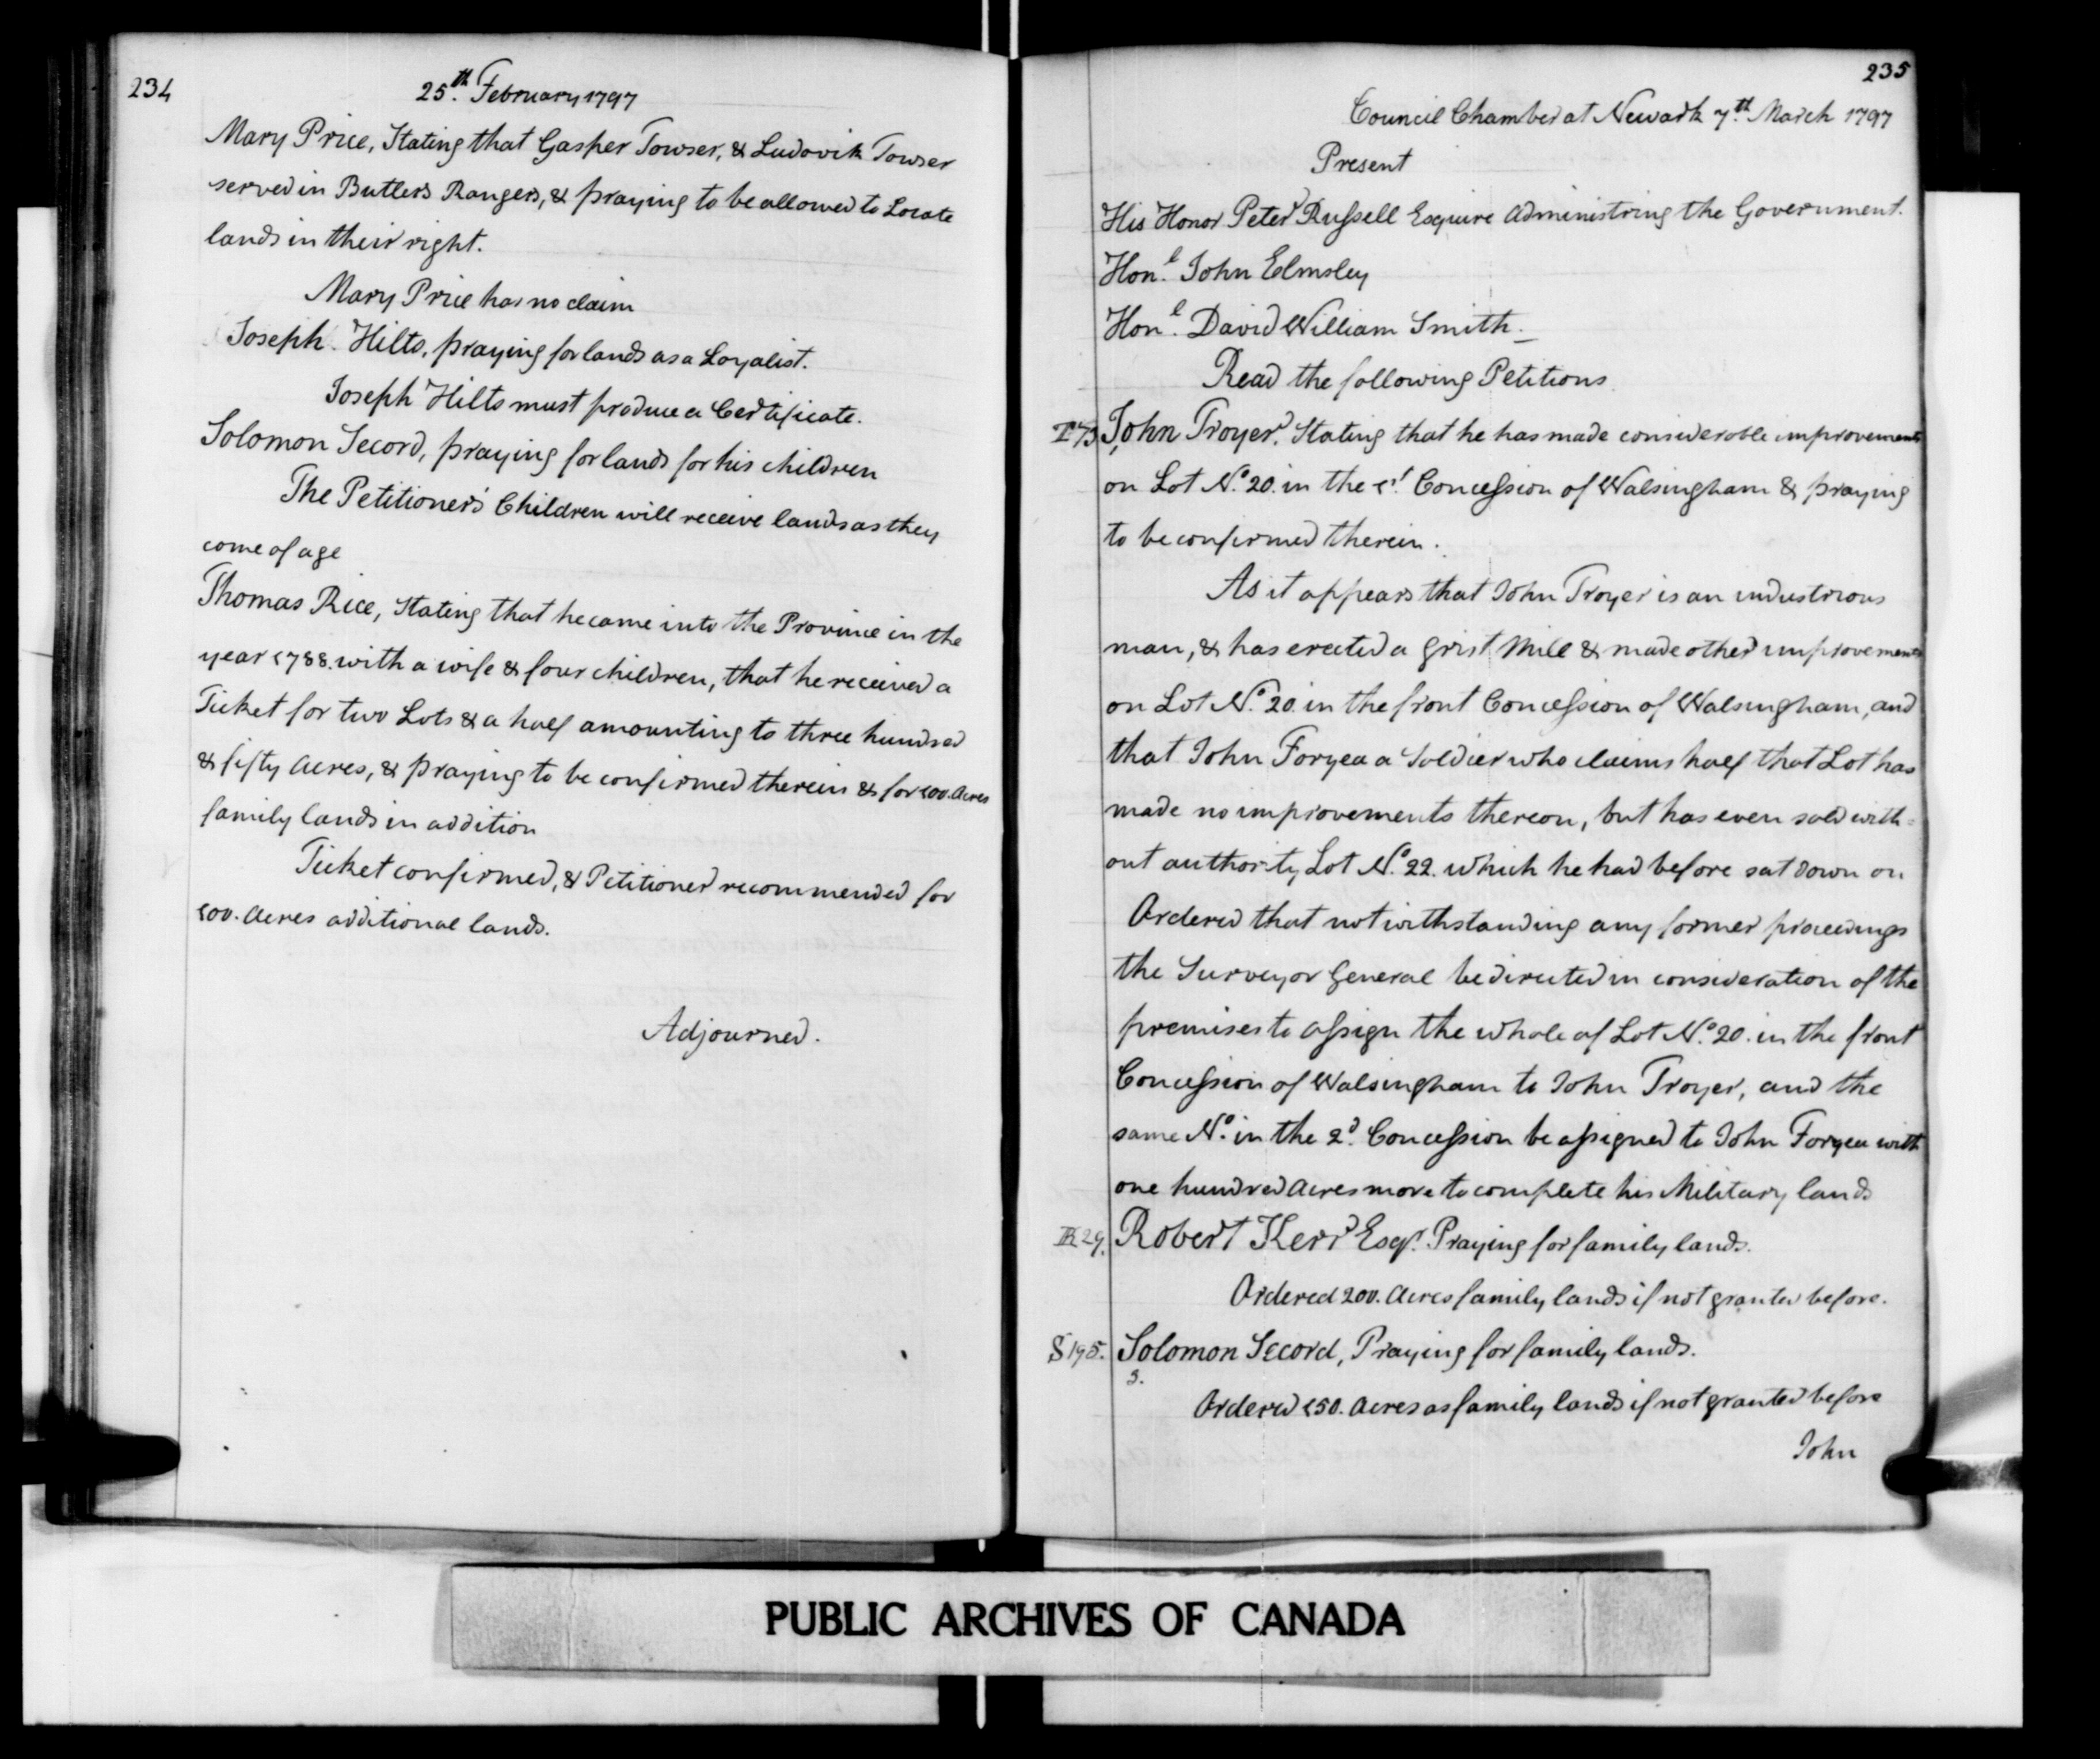 234
25.th February 1797
Mary Price, Stating that Gasper Towser, & Ludovik Towser
served in Butlers Rangers, & praying to be allowed to Locate
lands in their right.
Mary Price has no claim
Joseph Hilts, praying for lands as a Loyalist.
Joseph Hilts must produce a Certificate.
Solomon Secord, praying for lands for his children
The Petitioner's Children will receive lands as they
come of age
Thomas Rice, Stating that he came into the Province in the
year 1788. with a wife & four children, that he received a
Ticket for two Lots & a half amounting to three hundred
& fifty Acres, & praying to be confirmed therein & for 100. Acres
family lands in addition
Ticket confirmed, & Petitioner recommended for
100. Acres additional lands.
Adjourned.
235
Council Chamber at Newark 7.th March 1797
Present
His Honor Peter Russell Esquire Administring the Government.
Hon.l John Elmsley
Hon.l David William Smith.
Read the following Petitions
John Troyer. Stating that he has made considerable improvements
on Lot N.o 20. in the 1.t Concession of Walsingham & praying
to be confirmed therein.
As it appears that John Troyer is an industrious
man, & has erected a Grist Mill & made other improvements
on Lot N.o 20. in the front Concession of Walsingham, and
that John Foryea a Soldier who claims half that Lot has
made no improvements thereon, but has even sold with=
out authority Lot N.o 22. which he had before sat down on
Ordered that notwithstanding any former proceedings
the Surveyor General be directed in consideration of the
premises to assign the whole of Lot N.o 20. in the front
Concession of Walsingham to John Troyer, and the
same N.o in the 2.d Concession be assigned to John Foryea with
one hundred Acres more to complete his Military lands
K 29. Robert Kerr Esq.r Praying for family lands.
Ordered 200. Acres family lands if not granted before.
S 195. Solomon Secord, Praying for family lands.
3.
Ordered 150. Acres as family lands if not granted before
John
PUBLIC ARCHIVES OF CANADA